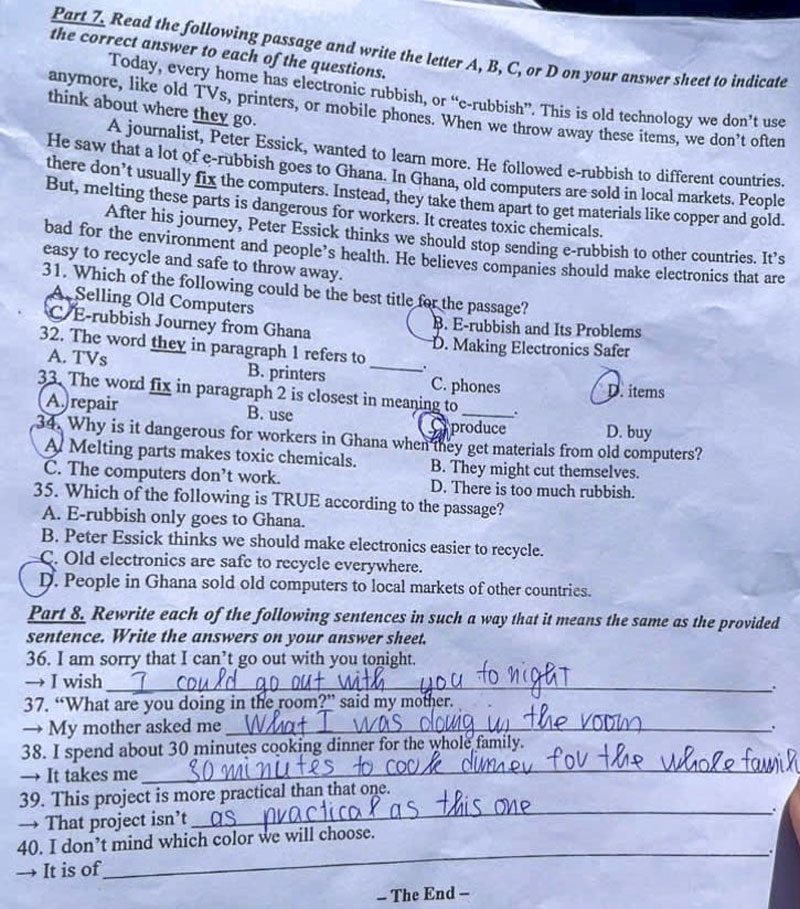 Part 7. Read the following passage and write the letter A, B, C, or D on your answer sheet to indicate
the correct answer to each of the questions.
Today, every home has electronic rubbish, or “e-rubbish”. This is old technology we don’t use
anymore, like old TVs, printers, or mobile phones. When we throw away these items, we don’t often
think about where they go.
A journalist, Peter Essick, wanted to learn more. He followed e-rubbish to different countries.
He saw that a lot of e-rubbish goes to Ghana. In Ghana, old computers are sold in local markets. People
there don’t usually fix the computers. Instead, they take them apart to get materials like copper and gold.
But, melting these parts is dangerous for workers. It creates toxic chemicals.
After his journey, Peter Essick thinks we should stop sending e-rubbish to other countries. It’s
bad for the environment and people’s health. He believes companies should make electronics that are
easy to recycle and safe to throw away.
31. Which of the following could be the best title for the passage?
A. Selling Old Computers B. E-rubbish and Its Problems
C. E-rubbish Journey from Ghana D. Making Electronics Safer
32. The word they in paragraph 1 refers to ______.
A. TVs B. printers C. phones D. items
33. The word fix in paragraph 2 is closest in meaning to ______.
A. repair B. use C. produce D. buy
34. Why is it dangerous for workers in Ghana when they get materials from old computers?
A. Melting parts makes toxic chemicals. B. They might cut themselves.
C. The computers don’t work. D. There is too much rubbish.
35. Which of the following is TRUE according to the passage?
A. E-rubbish only goes to Ghana.
B. Peter Essick thinks we should make electronics easier to recycle.
C. Old electronics are safe to recycle everywhere.
D. People in Ghana sold old computers to local markets of other countries.
Part 8. Rewrite each of the following sentences in such a way that it means the same as the provided
sentence. Write the answers on your answer sheet.
36. I am sorry that I can’t go out with you tonight.
→ I wish I could go out with you tonight.
37. “What are you doing in the room?” said my mother.
→ My mother asked me What I was doing in the room.
38. I spend about 30 minutes cooking dinner for the whole family.
→ It takes me 30 minutes to cook dinner for the whole family
39. This project is more practical than that one.
→ That project isn’t as practical as this one.
40. I don’t mind which color we will choose.
→ It is of ______.
– The End –